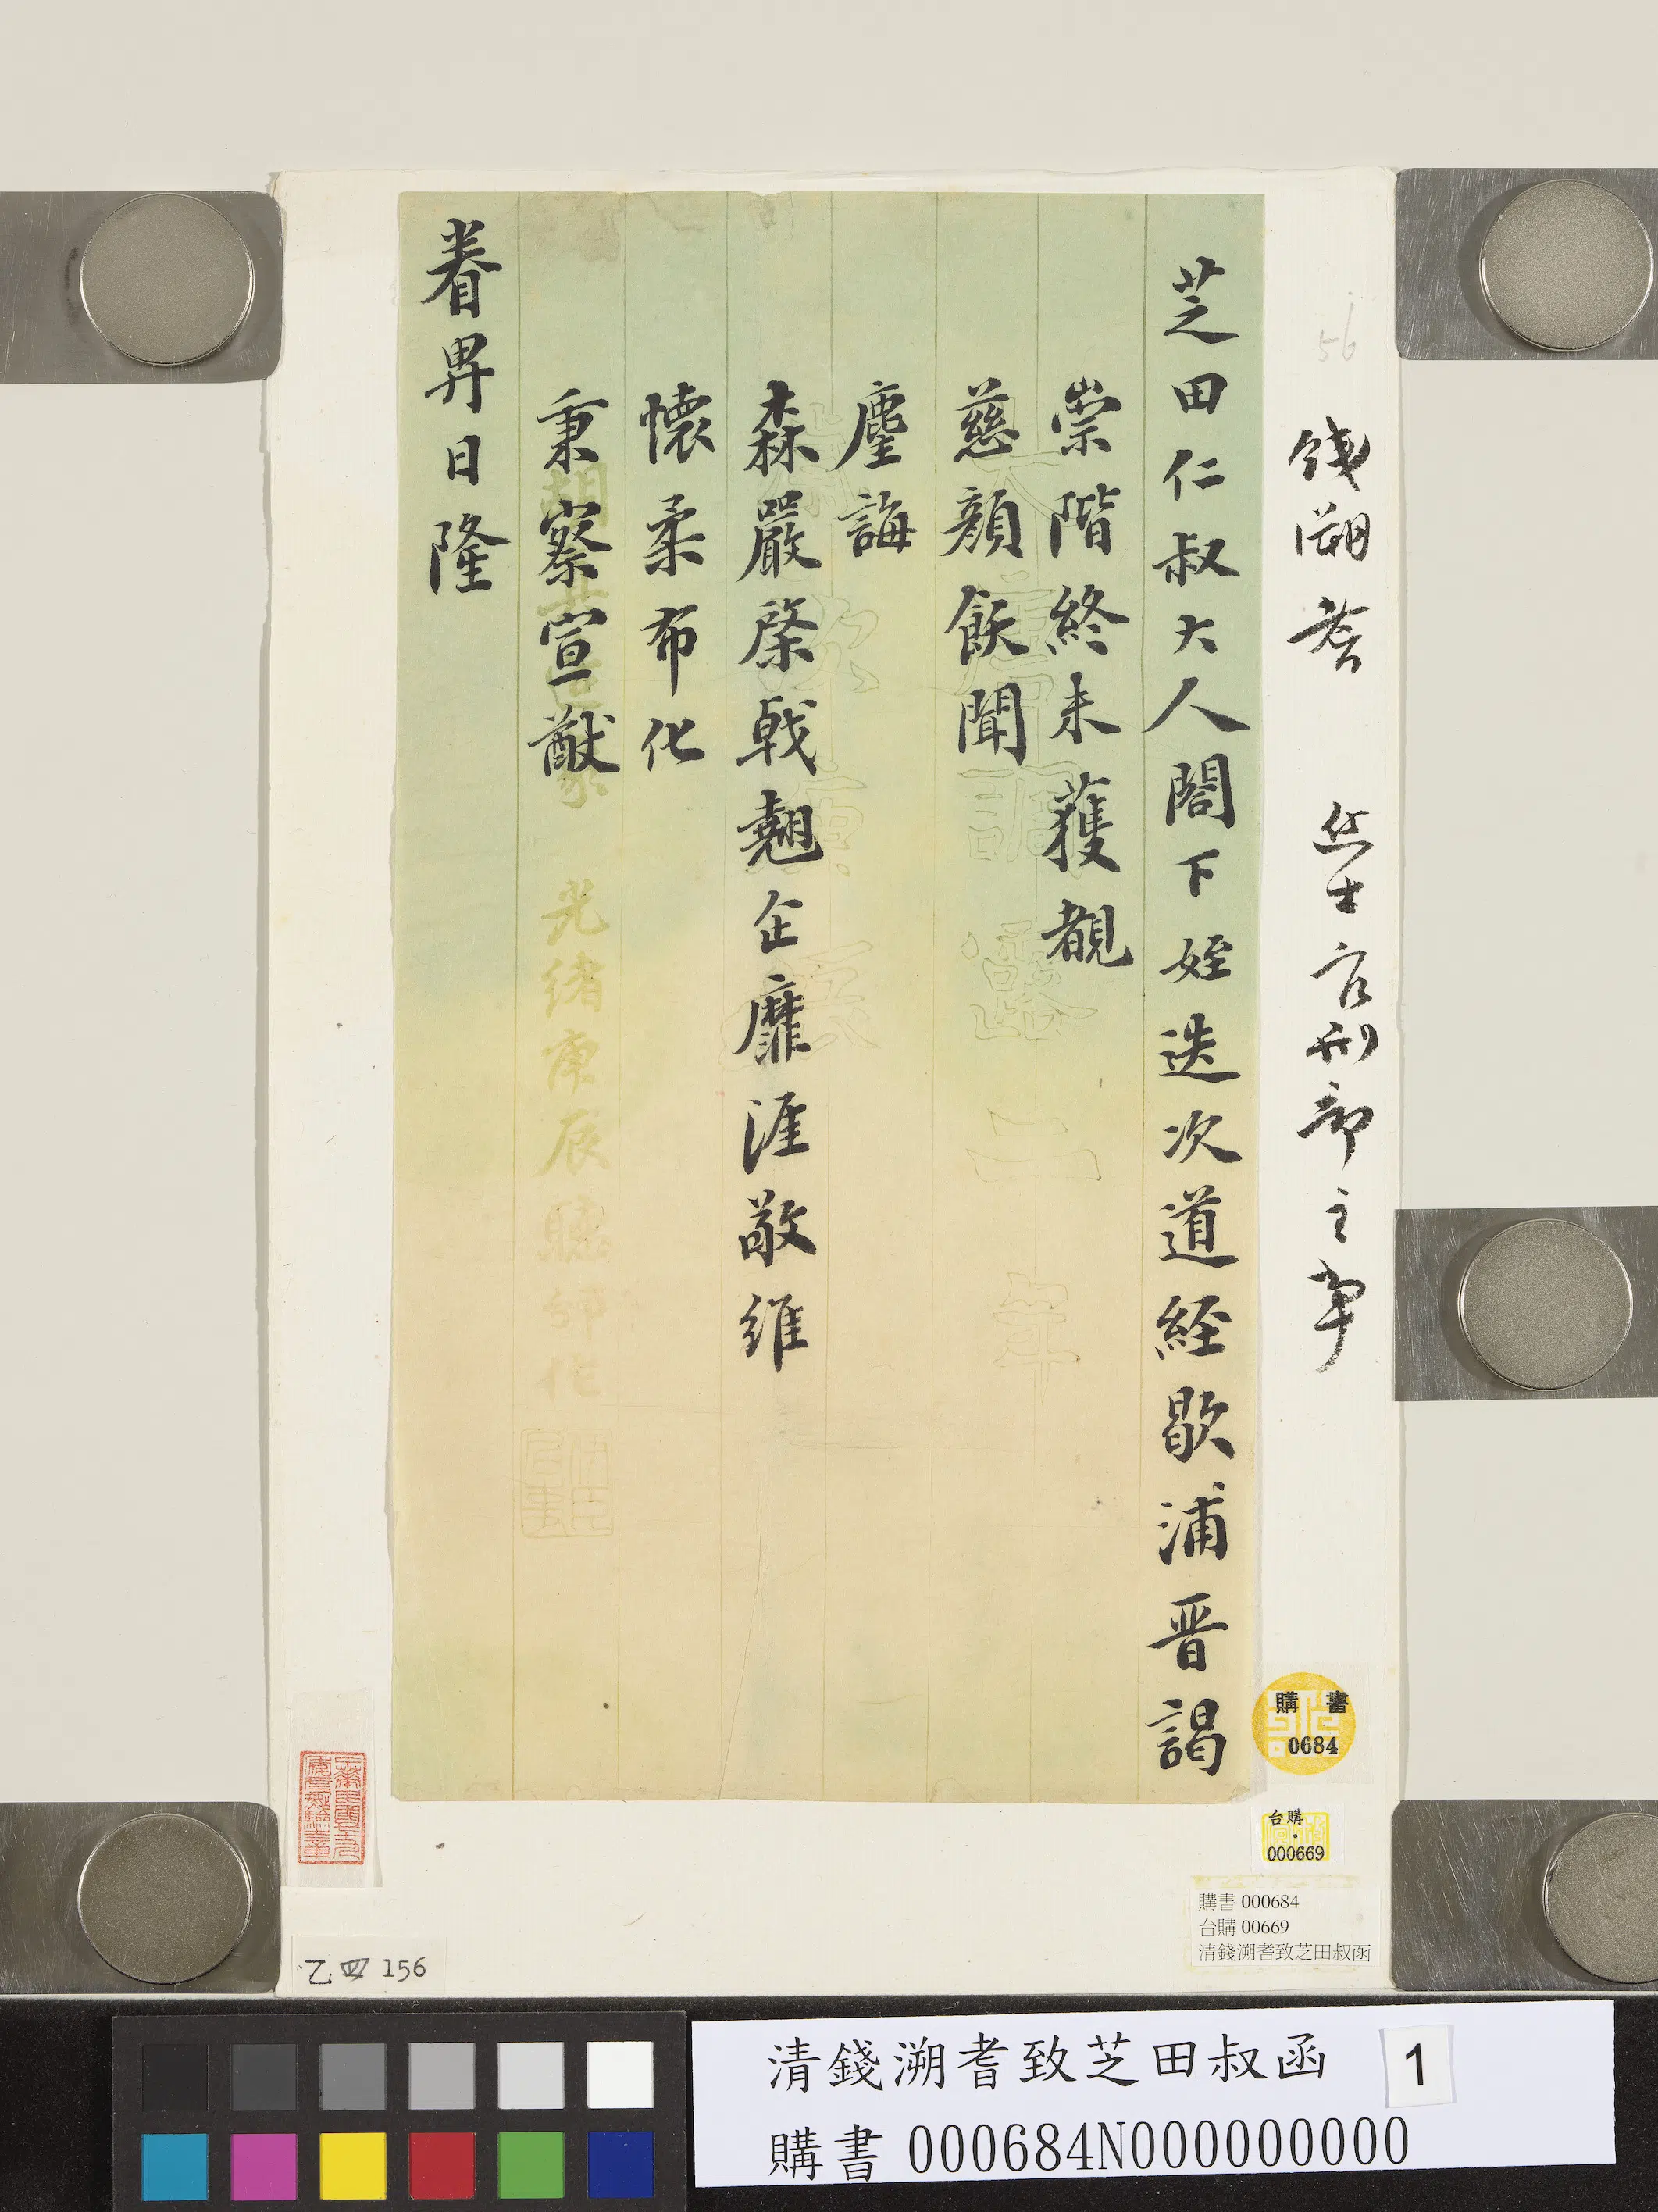 芝田仁叔大人閤下姪迭次道經歇浦晋謁
崇階終未獲覩
慈顏飫聞
麈誨
森嚴棨戟翹企靡涯敬維
懷柔布化
秉宷宣猷
眷畀日隆
光緒庚辰聽邠作
錢溯耆
官刑部主事
56
購書
0684
台購
000669
購書 000684
台購 00669
清錢溯耆致芝田叔函
乙四 156
清錢溯耆致芝田叔函
1
購書 000684N000000000